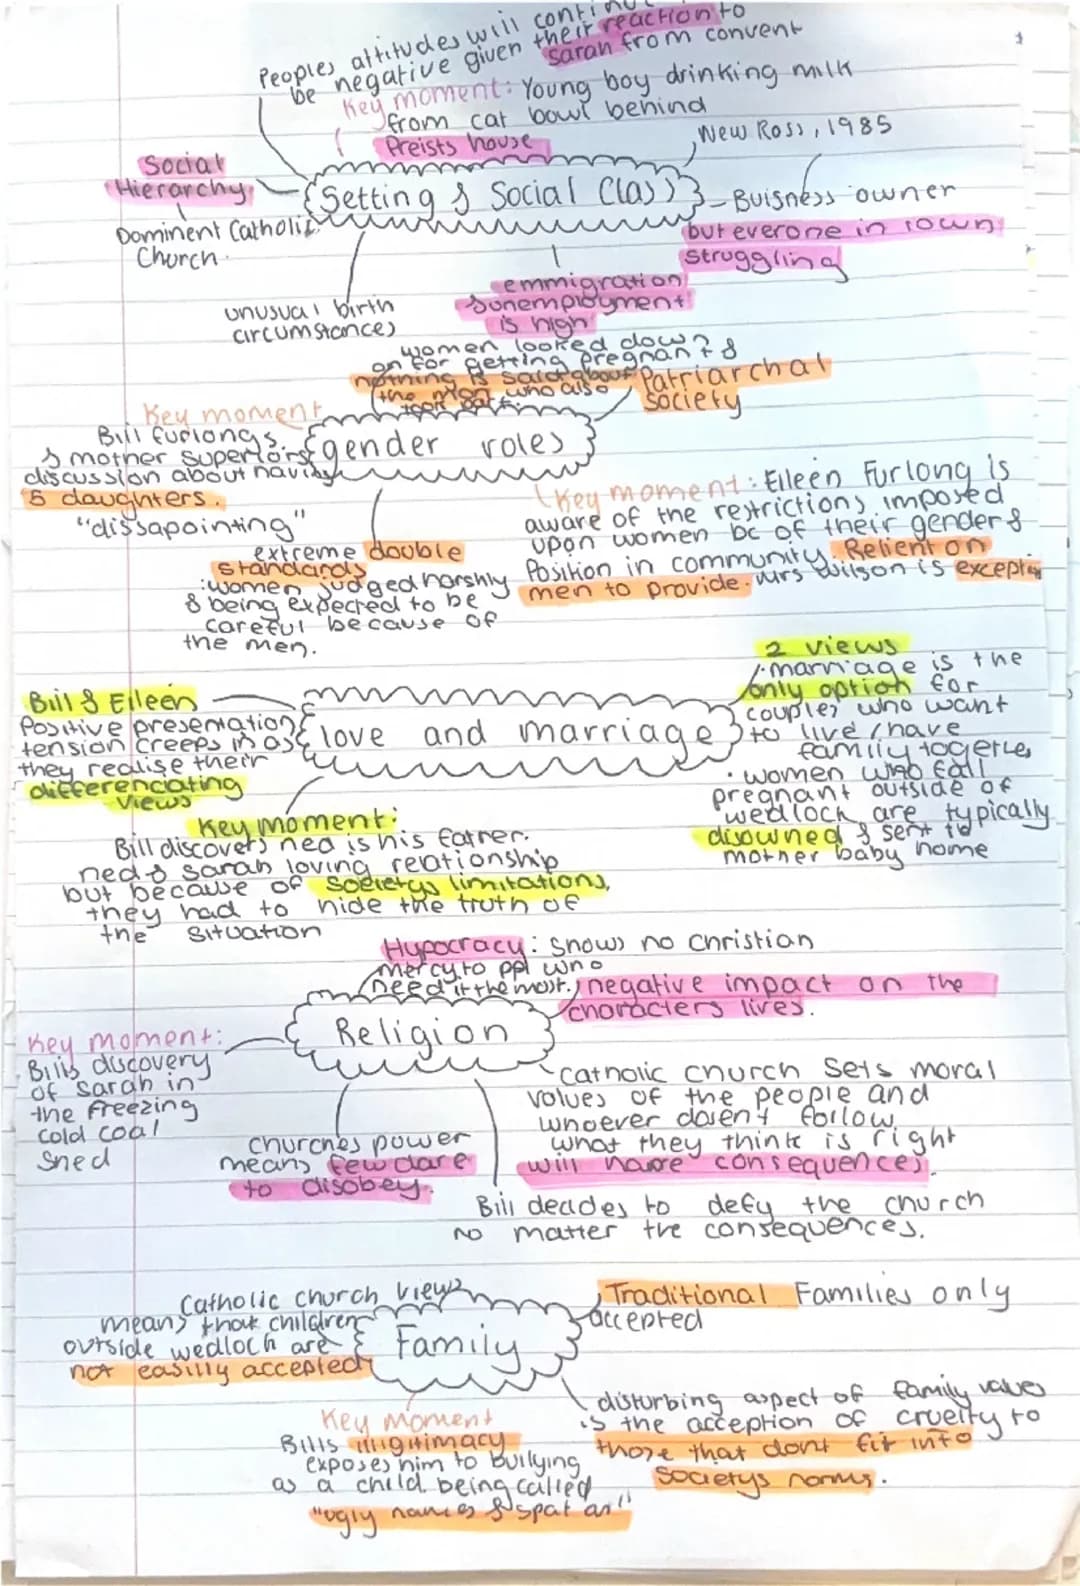 Peoples attitudes will continu
be negative given their reaction to
sarah from convent
Key moment: Young boy drinking milk
from cat bowl behind
Preists house
New Ross, 1985
Social
Hierarchy
Dominent Catholic
Church
Setting & Social Class
Buisness owner
but everone in town
struggling
unusual birth
circumstances
emmigration
& unemployment
is high
women looked down
on for getting pregnant &
nothing is said about
the men who also
took part.
Patriarchal
society
gender roles
Key moment
Bill furlongs
& mother superiors
discussion about having
5 daughters.
"dissapointing"
extreme double
standards
: women judged harshly
& being expected to be
careful because of
the men.
Key moment: Eileen Furlong is
aware of the restrictions imposed
upon women bc of their gender &
Position in community. Relient on
men to provide. Mrs Wilson is exceptio
love and marriage
Bill & Eileen
Positive presentation
tension creeps in as
they realise their
differenciating
views
2 views
· marriage is the
only option for
couples who want
to live / have
family together
· women who fall
pregnant outside of
wedlock are typically
disowned & sent to
mother baby home
Key moment:
Bill discovers ned is his father.
ned & sarah loving relationship
but because of societys limitations,
they had to hide the truth of
the situation
Religion
Hypocracy: shows no christian
mercy to ppl who
need it the most.
negative impact on the
characters lives.
Key moment:
Bills discovery
of sarah in
the freezing
cold coal
shed
churches power
means few dare
to disobey.
catholic church sets moral
values of the people and
whoever dosent follow
what they think is right
will have consequences.
Bill decides to defy the church
no matter the consequences.
Family
Catholic church views
means that children
outside wedlock are
not easilly accepted
Traditional Families only
accepted
Key Moment
Bills illigitimacy
exposes him to bullying
as a child being called
"ugly names & spat at"
disturbing aspect of family values
is the acception of cruelty to
those that dont fit into
societys norms.